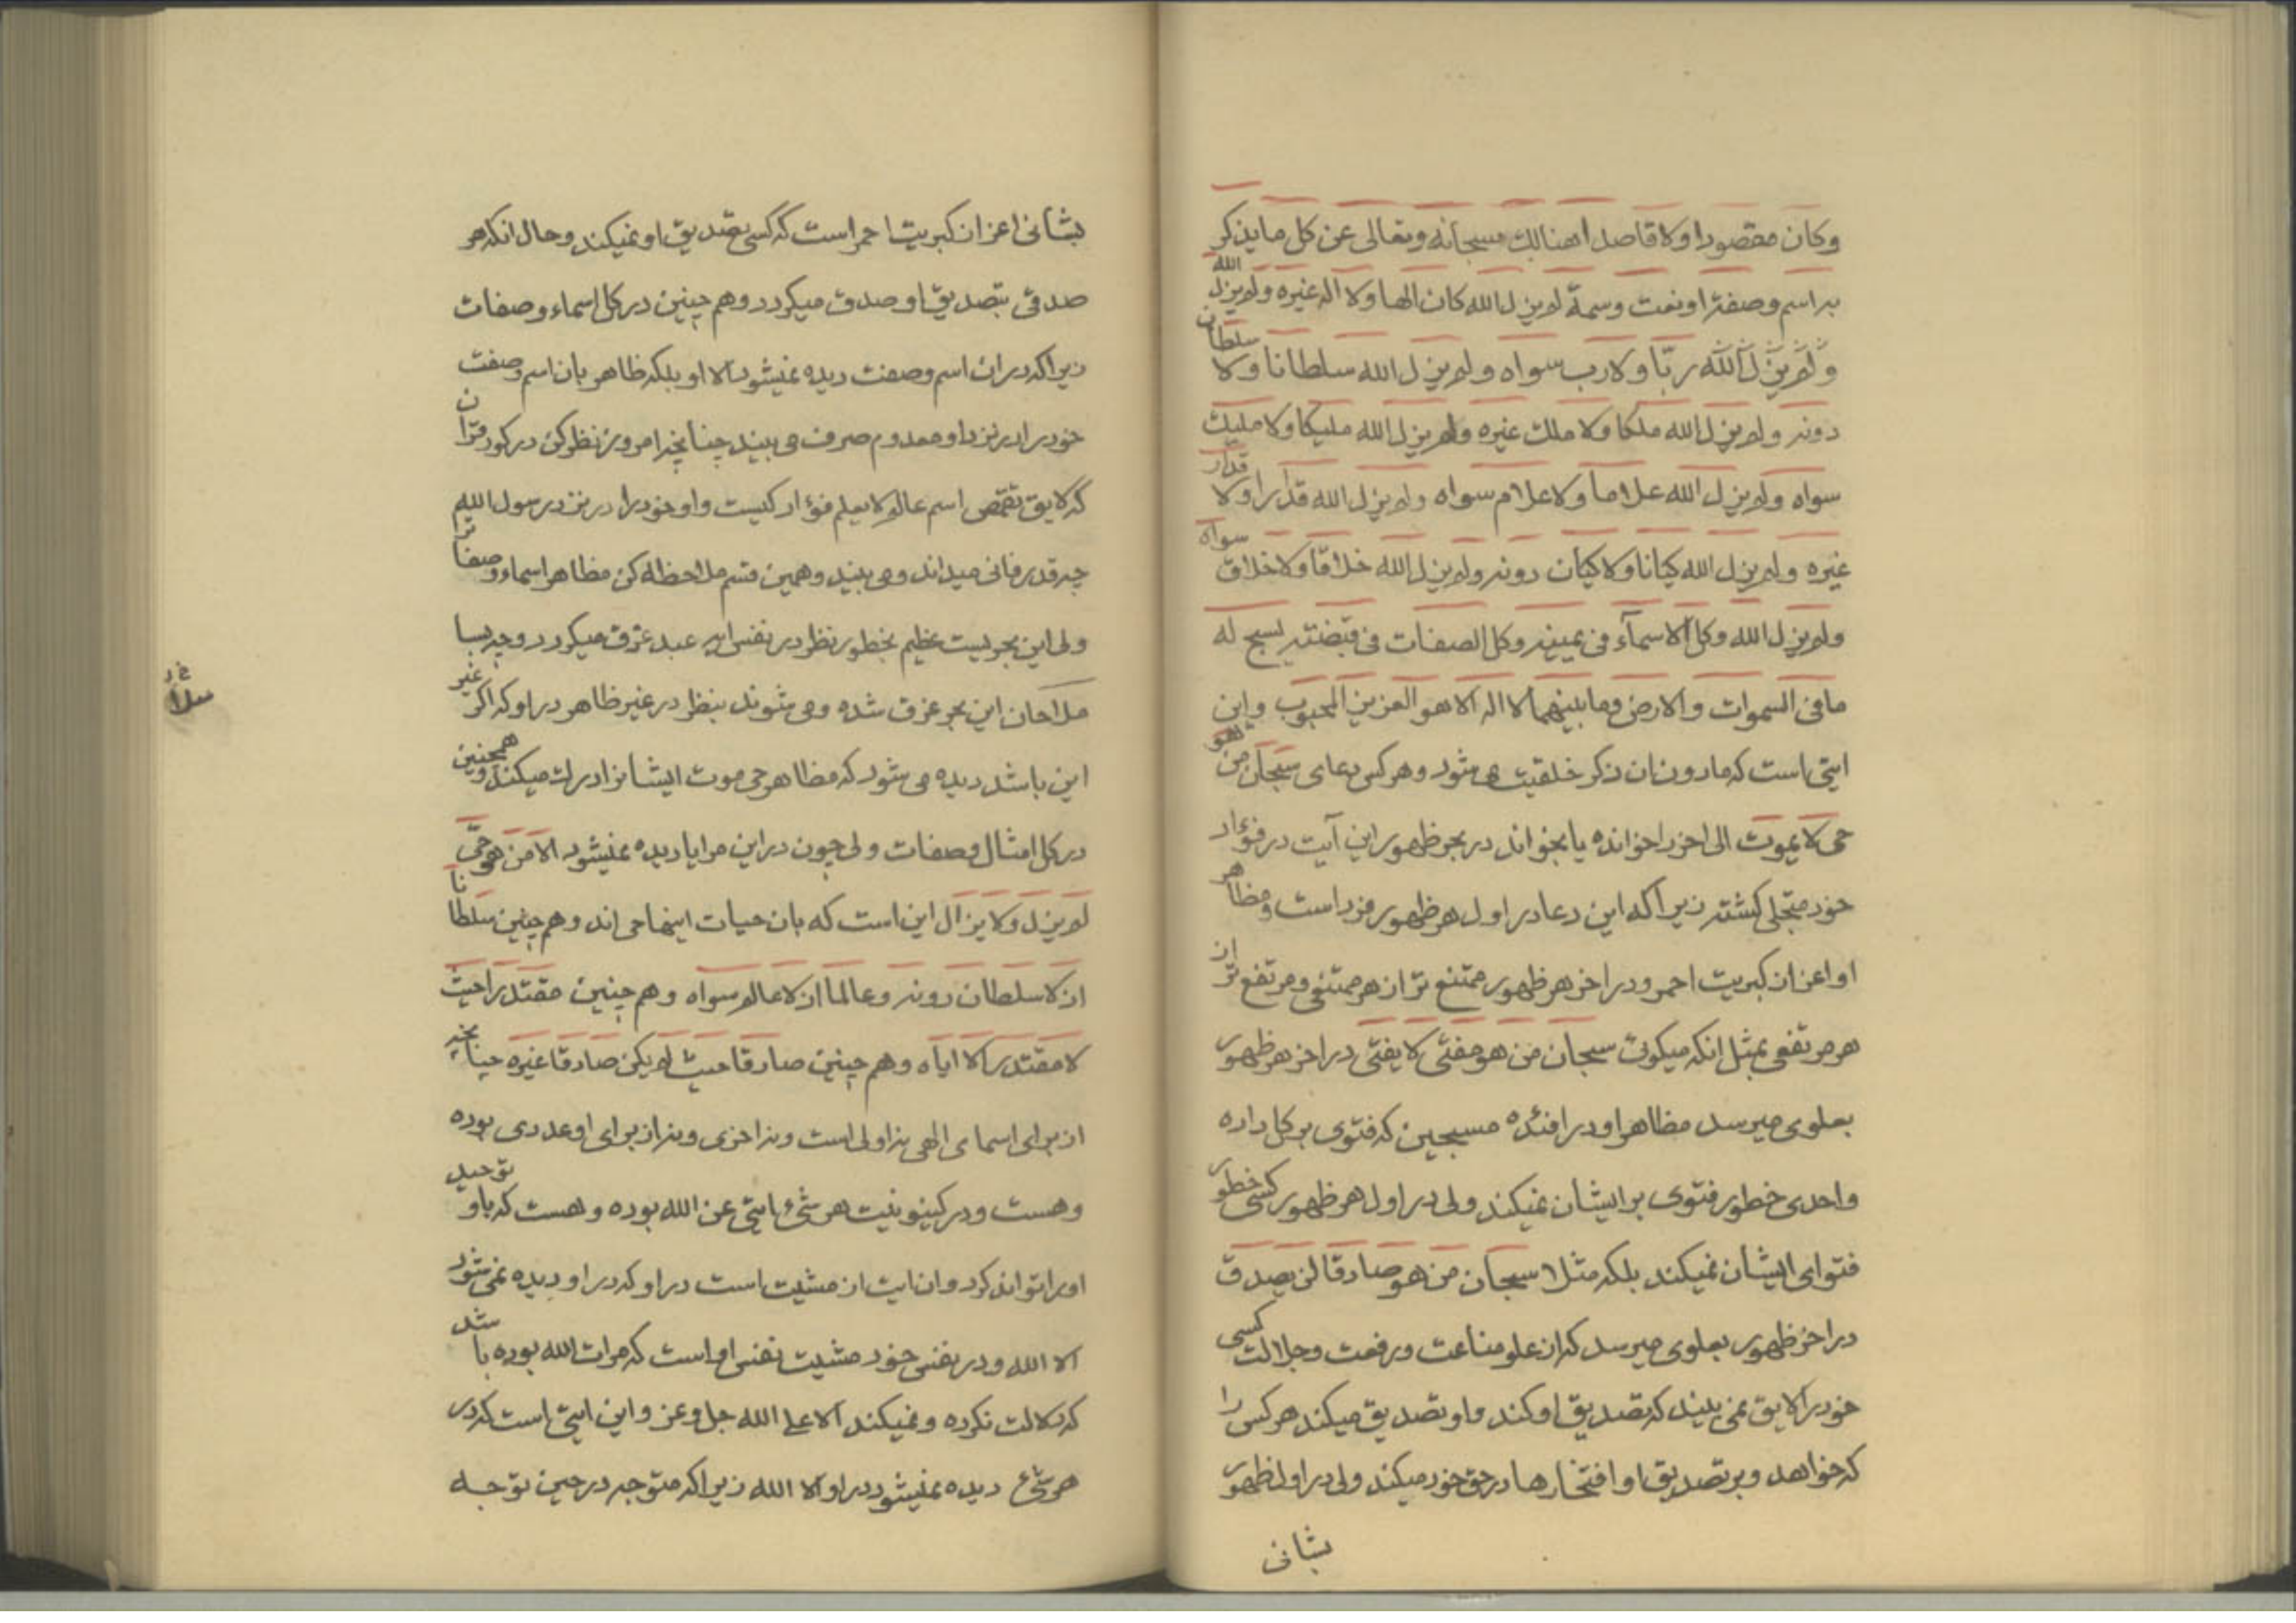 وكان مقصودا ولا قاصد اهنالك سبحانه وتعالى عن كل ما يذكر
به اسم وصفة او نعت وسمة لم يزل الله كان الها ولا اله غيره ولم يزل الله
ولم يزل الله ربّا ولا رب سواه ولم يزل الله سلطانا ولا سلطان
دونه ولم يزل الله ملكا ولا ملك غيره ولم يزل الله مليكا ولا مليك
سواه ولم يزل الله علاما ولا علام سواه ولم يزل الله قدارا ولا قدار
غيره ولم يزل الله كيانا ولا كيان دونه ولم يزل الله خلاقا ولا خلاق سواه
ولم يزل الله وكل الاسمآء فى يمينه وكل الصفات فى قبضته يسبح له
ما فى السموات والارض وما بينهما لا اله الا هو العزيز المحبوب واين
ايتى است كه مادون ان ذكر خلقيت مى شود وهر كس دعاى سبحان من هو
حى لا يموت الى اخر را خوانده يا بخواند در بحر ظهور اين آيت در فؤاد
خود متجلى كشته زيرا كه اين دعا در اول هر ظهور فرد است ومظاهر
او اعز از كبريت احمر ودر اخر هر ظهور ممتنع تر از هر ممتنعى ومرتفع تر از
هر مرتفعى بمثل انكه ميكوئى سبحان من هو مفتى لا يفتى در اخر هر ظهور
بعلوى ميرسد مظاهر او در افئده مسبحين كه فتوى بر كل داده
واحدى خطور فتوى بر ايشان نميكند ولى در اول هر ظهور كسى خطور
فتواى ايشان نميكند بلكه مثلا سبحان من هو صادقا لن يصدق
در اخر ظهور بعلوى ميرسد كه از علو مناعت ورفعت وجلالت كسى
خود را لايق نمى بيند كه تصديق او كند واو تصديق ميكند هر كسى را
كه خواهد وبر تصديق او افتخارها در حق خود ميكند ولى در اول ظهور
بشانى
بشانى اعز از كبريت احمر است كه كسى تصديق او نميكند وحال انكه هر
صدقى بتصديق او صدق ميكردد وهم چنين در كل اسماء وصفات
زيرا كه در ان اسم وصفت ديده نميشود الا او بلكه ظاهر بان اسم وصفت
خود را در نزد او معدوم صرف مى بيند چنانچه امروز نظر كن در كور قران
كه لايق تقمص اسم عالم لا يعلم فؤاد كيست واو خود را در نزد رسول الله
چه قدر فانى ميداند ومى بيند وهمين قسم ملاحظه كن مظاهر اسماء وصفات را
ولى اين بحريست عظيم بخطور نظر در نفس ايه عبد غرق ميكردد وچه بسا
ملاحان اين بحر غرق شده ومى شوند بنظر در غير ظاهر در او كه اكر غير
اين باشد ديده مى شود كه مظاهر حى موت ايشانرا درك ميكند وهمچنين
در كل امثال وصفات ولى چون در اين مرايا ديده نميشود الا من هو حىّ
لم يزل ولا يزال اين است كه بان حيات اينها حى اند وهم چنين سلطانا
ان لا سلطان دونه وعالما ان لا عالم سواه وهم چنين مقتدرا حيث
لا مقتدر الا اياه وهم چنين صادقا حيث لم يكن صادقا غيره چنانچه
از براى اسماى الهى نه اولى است ونه اخرى ونه از براى او عددى بوده
وهست ودر كينونيت هر شىء ايتى عن الله بوده وهست كه باو توحيد
او را تواند كرد وان ايت از مشيت است در او كه در او ديده نمى شود
الا الله ودر نفس خود مشيت نفس او است كه مرات الله بوده باشد
كه دلالت نكرده ونميكند الا على الله جل وعز واين ايتى است كه در
هر شىء ديده نميشود در او الا الله زيرا كه متوجه در حين توجه